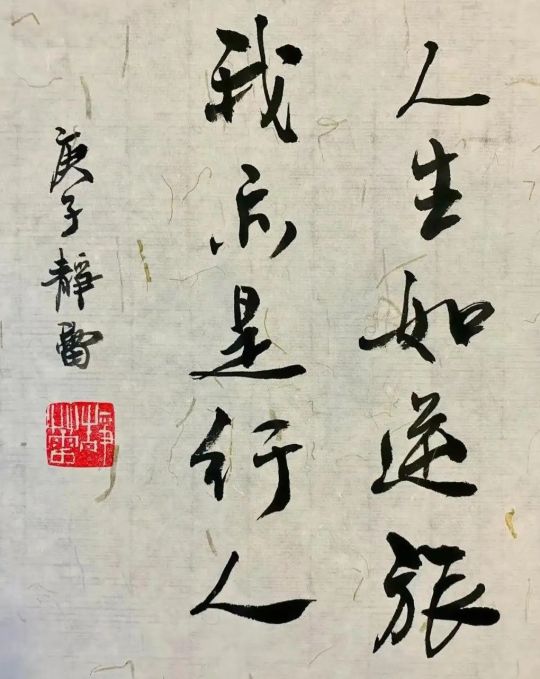 人生如逆旅
我亦是行人
庚子靜雷